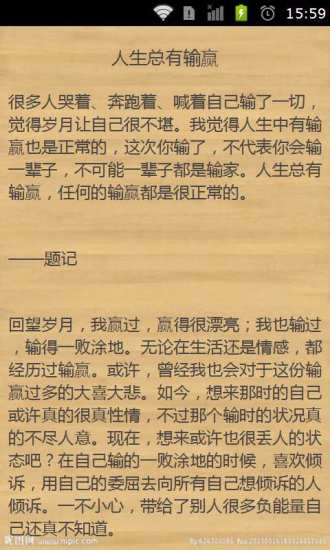 15:59
人生总有输赢
很多人哭着、奔跑着、喊着自己输了一切，
觉得岁月让自己很不堪。我觉得人生中有输
赢也是正常的，这次你输了，不代表你会输
一辈子，不可能一辈子都是输家。人生总有
输赢，任何的输赢都是很正常的。
——题记
回望岁月，我赢过，赢得很漂亮；我也输过
，输得一败涂地。无论在生活还是情感，都
经历过输赢。或许，曾经我也会对于这份输
赢过多的大喜大悲。如今，想来那时的自己
或许真的很真性情，不过那个输时的状况真
的不尽人意。现在，想来或许也很丢人的状
态吧？在自己输的一败涂地的时候，喜欢倾
诉，用自己的委屈去向所有自己想倾诉的人
倾诉。一不小心，带给了别人很多负能量自
己还真不知道。